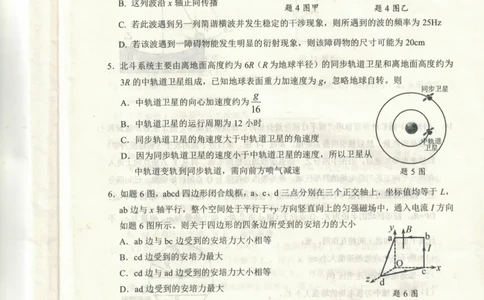 B. 这列波沿x轴正向传播
题4图甲
题4图乙
C. 若此波遇到另一列简谐横波并发生稳定的干涉现象，则所遇到的波的频率为25Hz
D. 若该波遇到一障碍物能发生明显的衍射现象，则该障碍物的尺寸可能为20cm
5. 北斗系统主要由离地面高度约为6R（R为地球半径）的同步轨道卫星和离地面高度约为
3R的中轨道卫星组成，已知地球表面重力加速度为g，忽略地球自转。则
A. 中轨道卫星的向心加速度约为 g/16
B. 中轨道卫星的运行周期为12小时
C. 同步轨道卫星的角速度大于中轨道卫星的角速度
D. 因为同步轨道卫星的速度小于中轨道卫星的速度，所以卫星从
中轨道变轨到同步轨道，需向前方喷气减速
同步卫星
中轨道
卫星
题5图
6. 如题6图，abcd四边形闭合线框，a、c、d三点分别在三个正交轴上，坐标值均等于L，
ab边与x轴平行，整个空间处于平行于+y方向竖直向上的匀强磁场中，通入电流I方向
如题6图所示。则关于四边形的四条边所受到的安培力的大小
A. ab边与bc边受到的安培力大小相等
B. cd边受到的安培力最大
C. cd边与ad边受到的安培力大小相等
D. ad边受到的安培力最大
y
B
a
b
I
O
c
x
z
d
题6图